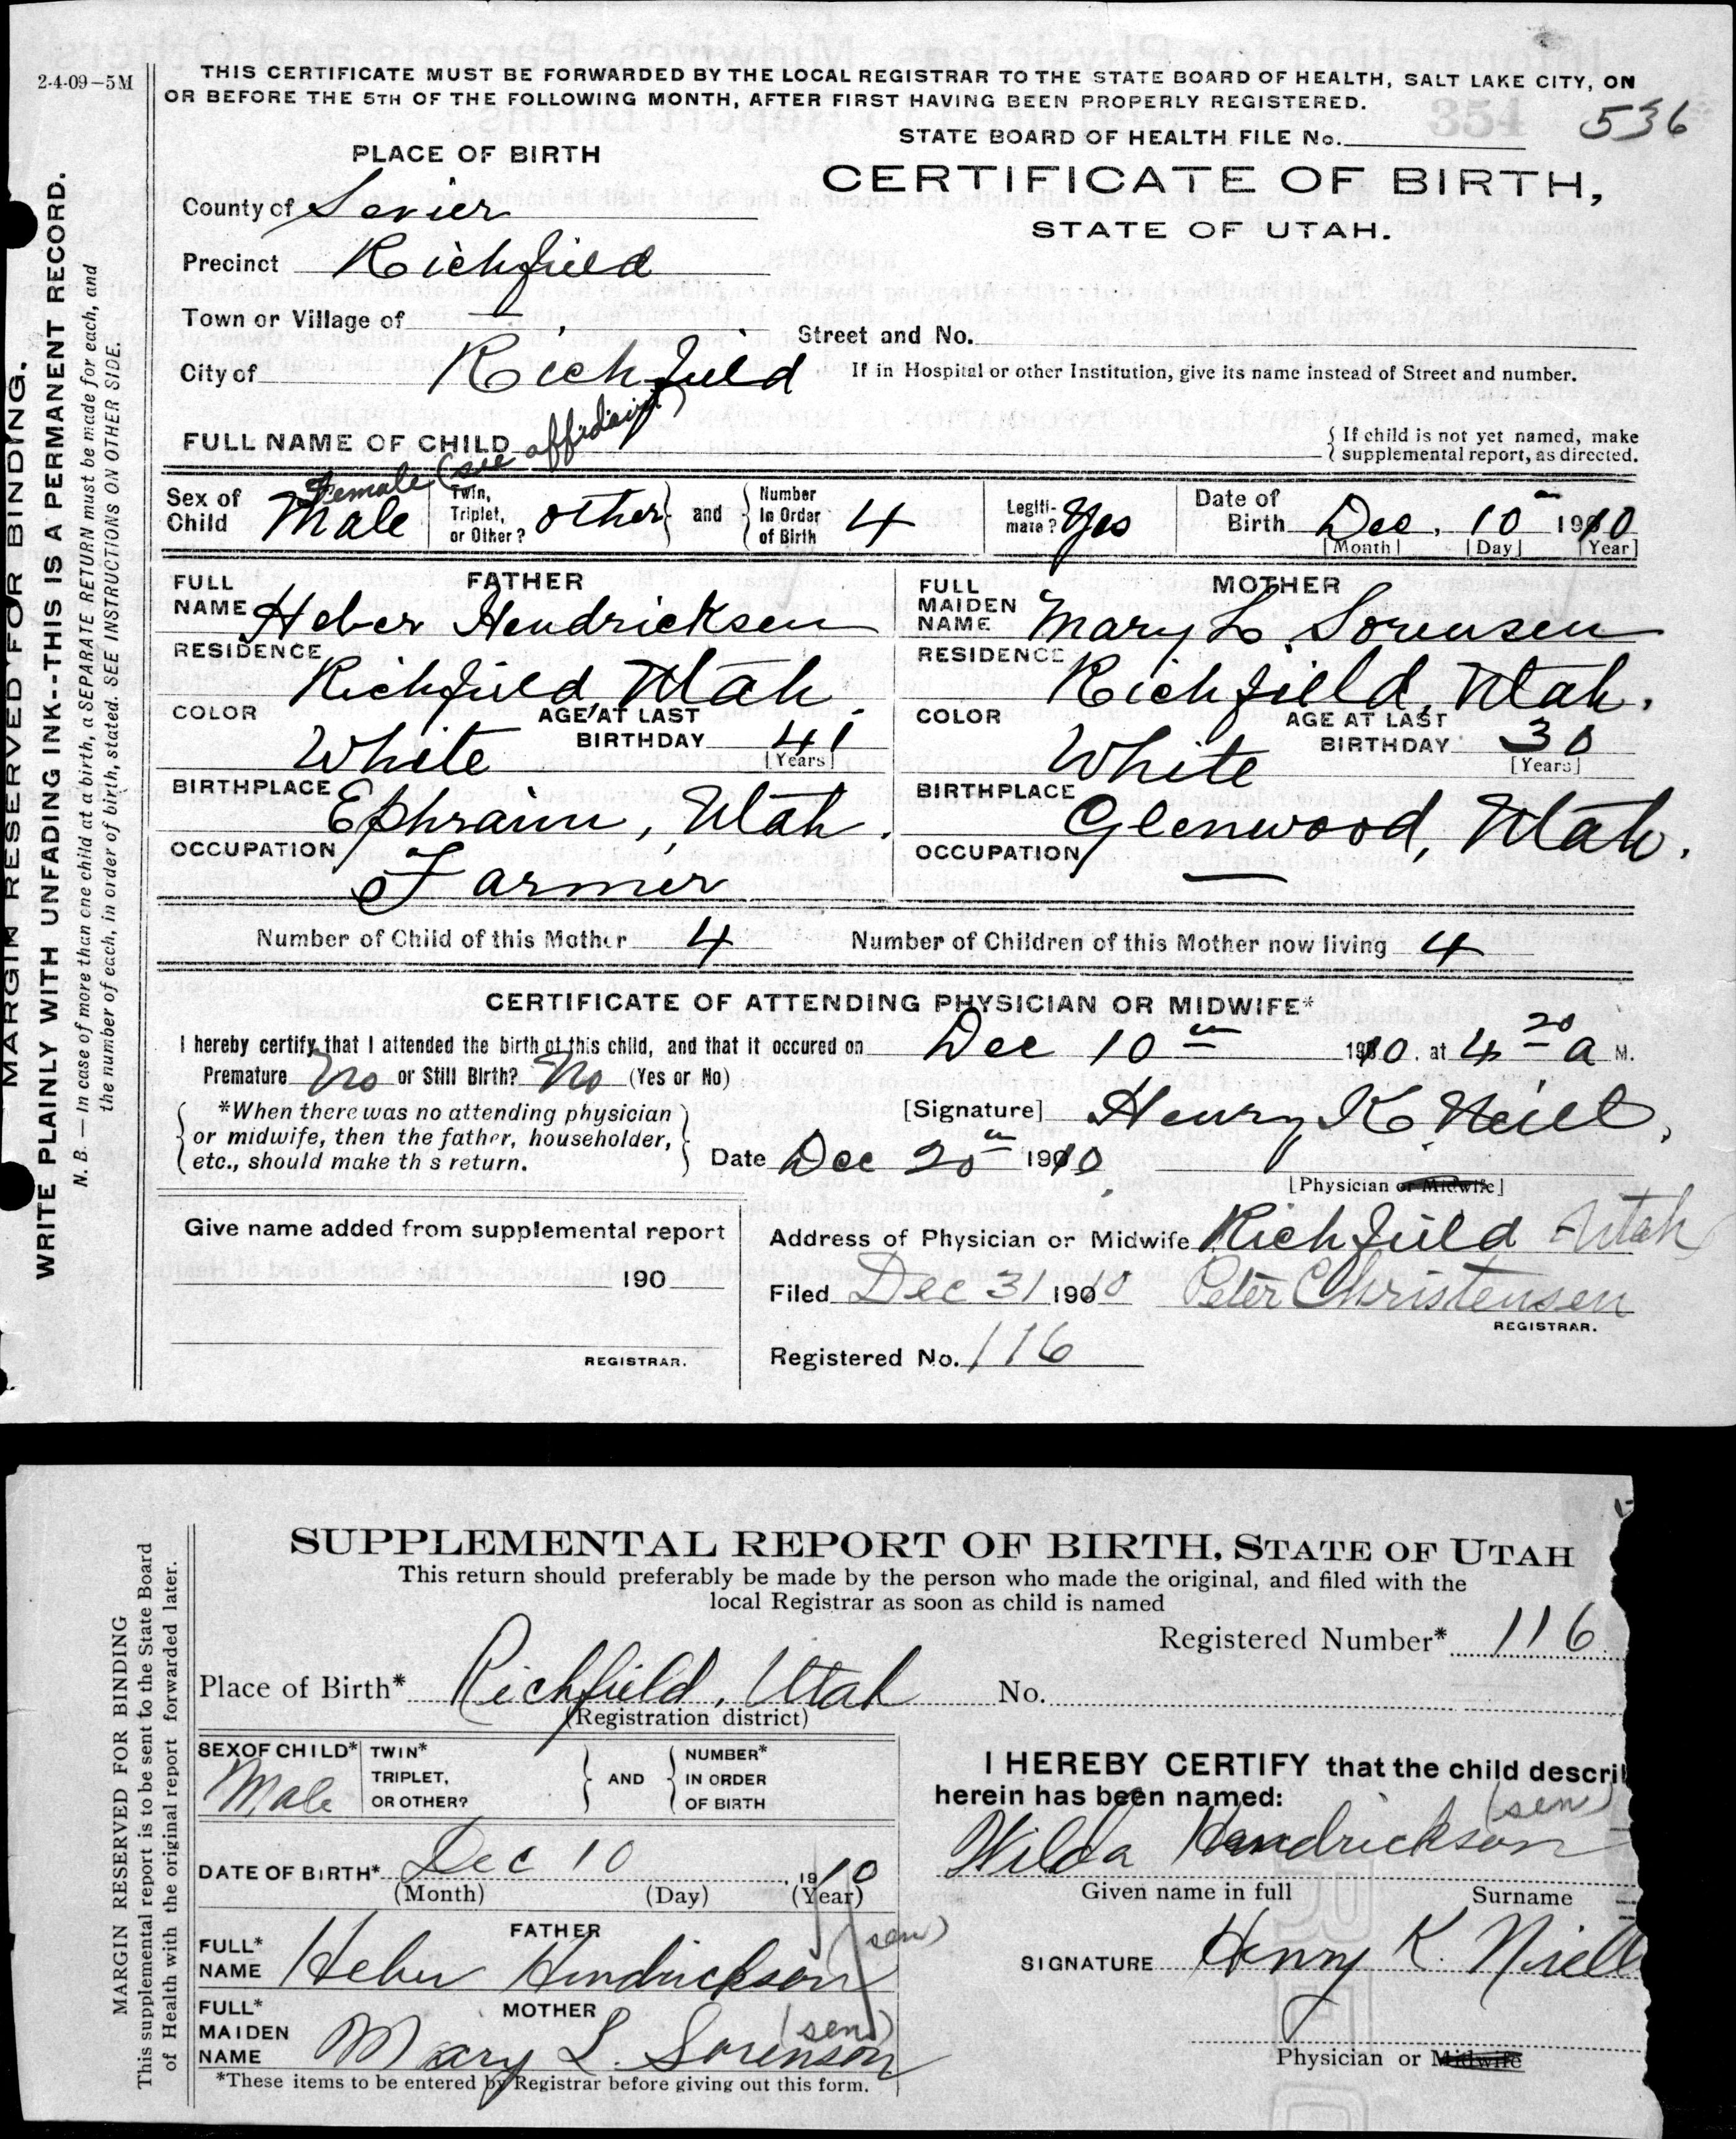 2-4-09—5M
THIS CERTIFICATE MUST BE FORWARDED BY THE LOCAL REGISTRAR TO THE STATE BOARD OF HEALTH, SALT LAKE CITY, ON
OR BEFORE THE 5TH OF THE FOLLOWING MONTH, AFTER FIRST HAVING BEEN PROPERLY REGISTERED.
354 536
STATE BOARD OF HEALTH FILE No.
CERTIFICATE OF BIRTH,
STATE OF UTAH.
MARGIN RESERVED FOR BINDING.
WRITE PLAINLY WITH UNFADING INK--THIS IS A PERMANENT RECORD.
N. B. — In case of more than one child at a birth, a SEPARATE RETURN must be made for each, and
the number of each, in order of birth, stated. SEE INSTRUCTIONS ON OTHER SIDE.
PLACE OF BIRTH
County of Sevier
Precinct Richfield
Town or Village of —
Street and No.
City of Richfield
If in Hospital or other Institution, give its name instead of Street and number.
FULL NAME OF CHILD
{ If child is not yet named, make
supplemental report, as directed.
Female (see affidavit)
Sex of Child Male
Twin, Triplet, or Other? other } and { Number In Order of Birth 4
Legiti-mate? Yes
Date of Birth Dec. 10 1910
[Month] [Day] [Year]
FATHER
FULL NAME Heber Hendricksen
RESIDENCE Richfield Utah.
COLOR White
AGE AT LAST BIRTHDAY 41 [Years]
BIRTHPLACE Ephraim, Utah.
OCCUPATION Farmer
MOTHER
FULL MAIDEN NAME Mary L. Sorensen
RESIDENCE Richfield, Utah.
COLOR White
AGE AT LAST BIRTHDAY 30 [Years]
BIRTHPLACE Glenwood, Utah.
OCCUPATION —
Number of Child of this Mother 4
Number of Children of this Mother now living 4
CERTIFICATE OF ATTENDING PHYSICIAN OR MIDWIFE*
I hereby certify that I attended the birth of this child, and that it occured on Dec 10 1910. at 4 20 a M.
Premature No or Still Birth? No (Yes or No)
{ *When there was no attending physician
or midwife, then the father, householder,
etc., should make th s return. }
[Signature] Henry K. Neill,
Date Dec 20 1910
[Physician or Midwife]
Give name added from supplemental report
190
REGISTRAR.
Address of Physician or Midwife Richfield Utah
Filed Dec 31 1910 Peter Christensen
REGISTRAR.
Registered No. 116
SUPPLEMENTAL REPORT OF BIRTH, STATE OF UTAH
This return should preferably be made by the person who made the original, and filed with the
local Registrar as soon as child is named
MARGIN RESERVED FOR BINDING
This supplemental report is to be sent to the State Board
of Health with the original report forwarded later.
Registered Number* 116
Place of Birth* Richfield, Utah No.
(Registration district)
SEX OF CHILD* Male
TWIN* TRIPLET, OR OTHER? } AND { NUMBER* IN ORDER OF BIRTH
DATE OF BIRTH* Dec 10, 1910
(Month) (Day) (Year)
FATHER
FULL* NAME Heber Hendrickson (sen)
MOTHER
FULL* MAIDEN NAME Mary L. Sorenson (sen)
*These items to be entered by Registrar before giving out this form.
I HEREBY CERTIFY that the child descri
herein has been named:
(sen)
Wilda Hendrickson
Given name in full Surname
SIGNATURE Henry K. Niell
Physician or Midwife